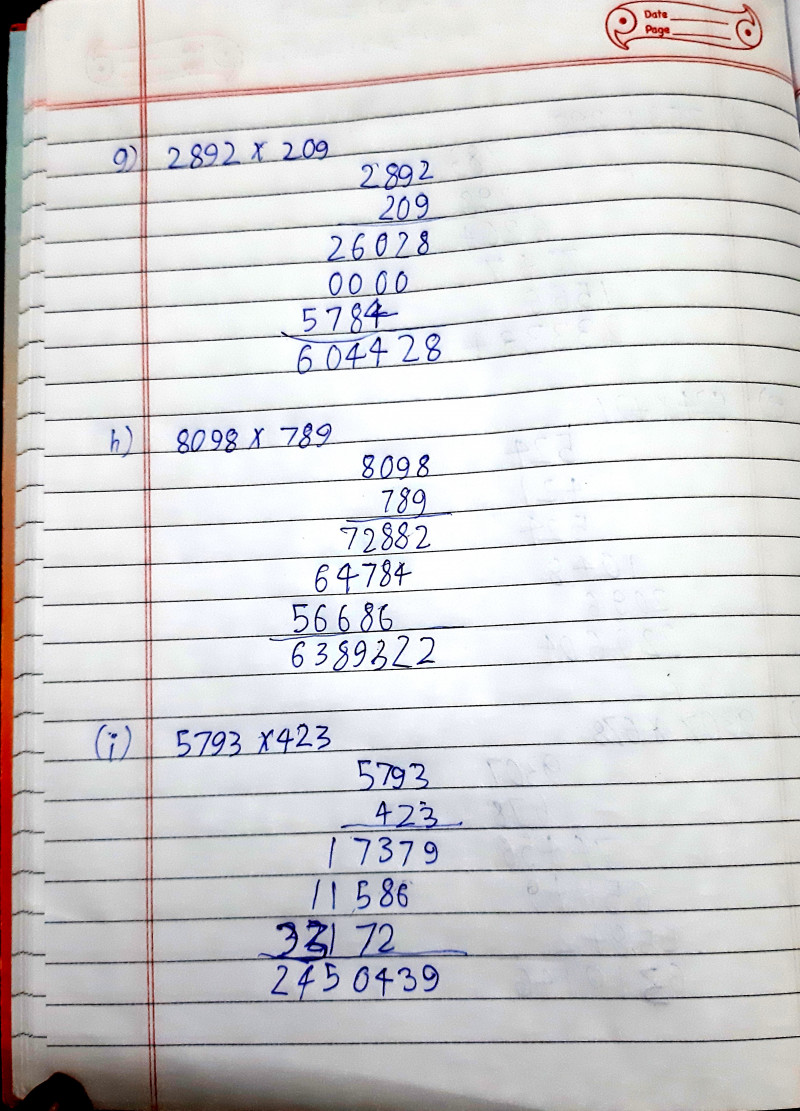 Date
Page
g) 2892 x 209
2892
209
26028
0000
5784
604428
h) 8098 x 789
8098
789
72882
64784
56686
6389322
(i) 5793 x 423
5793
423
17379
11586
2450439